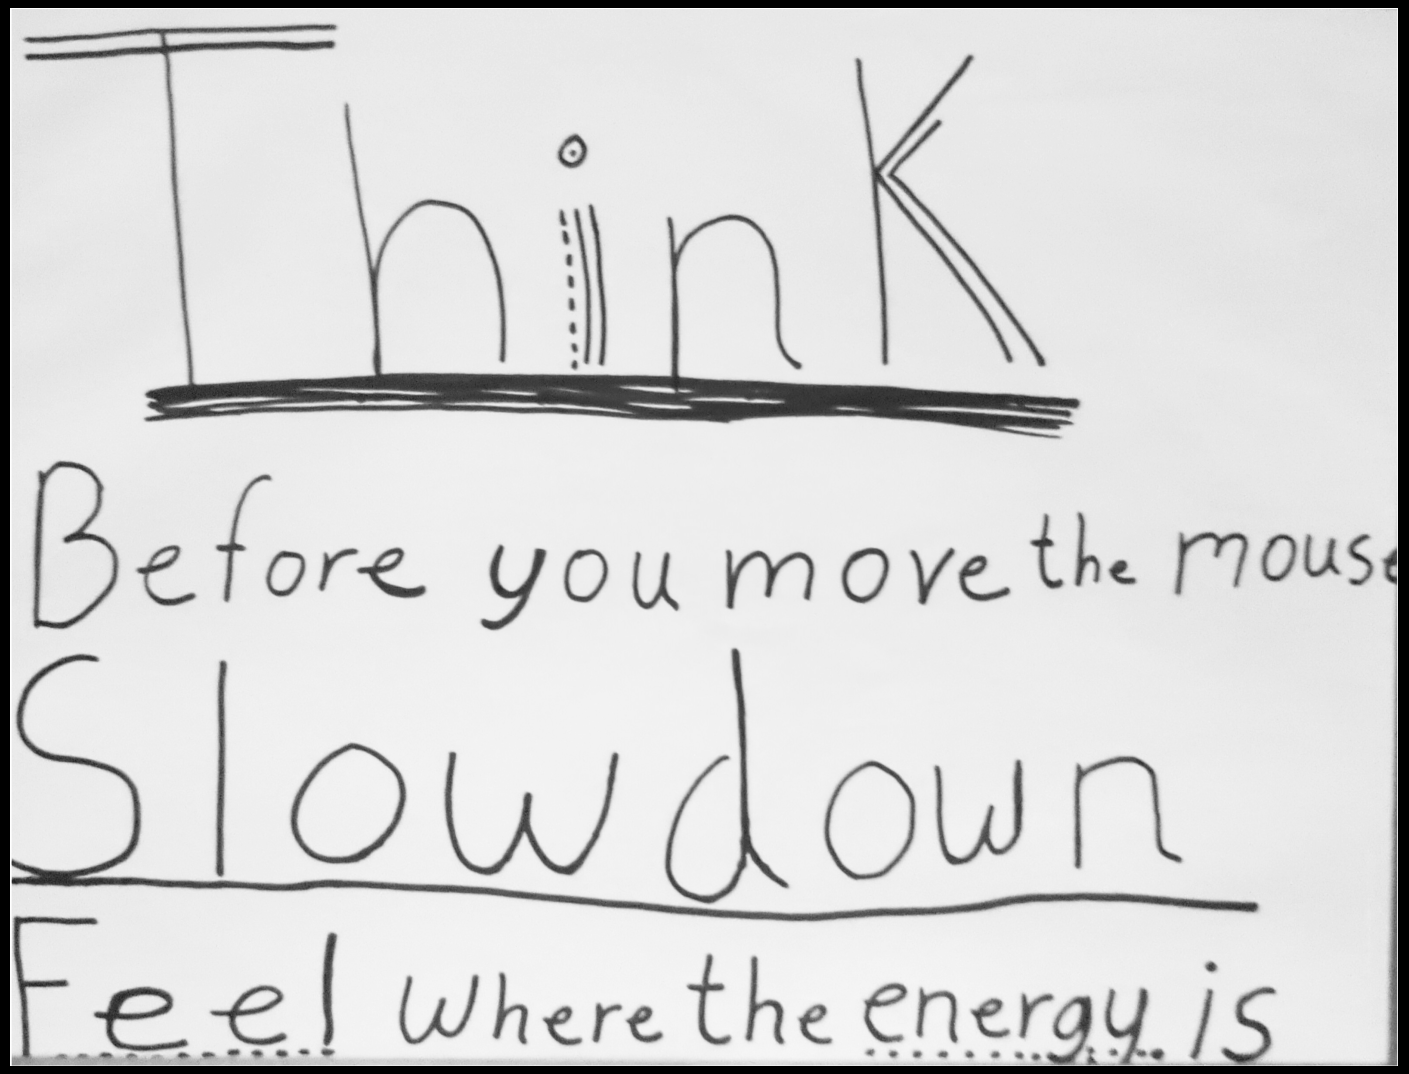 Think
Before you move the mouse
Slow down
Feel where the energy is